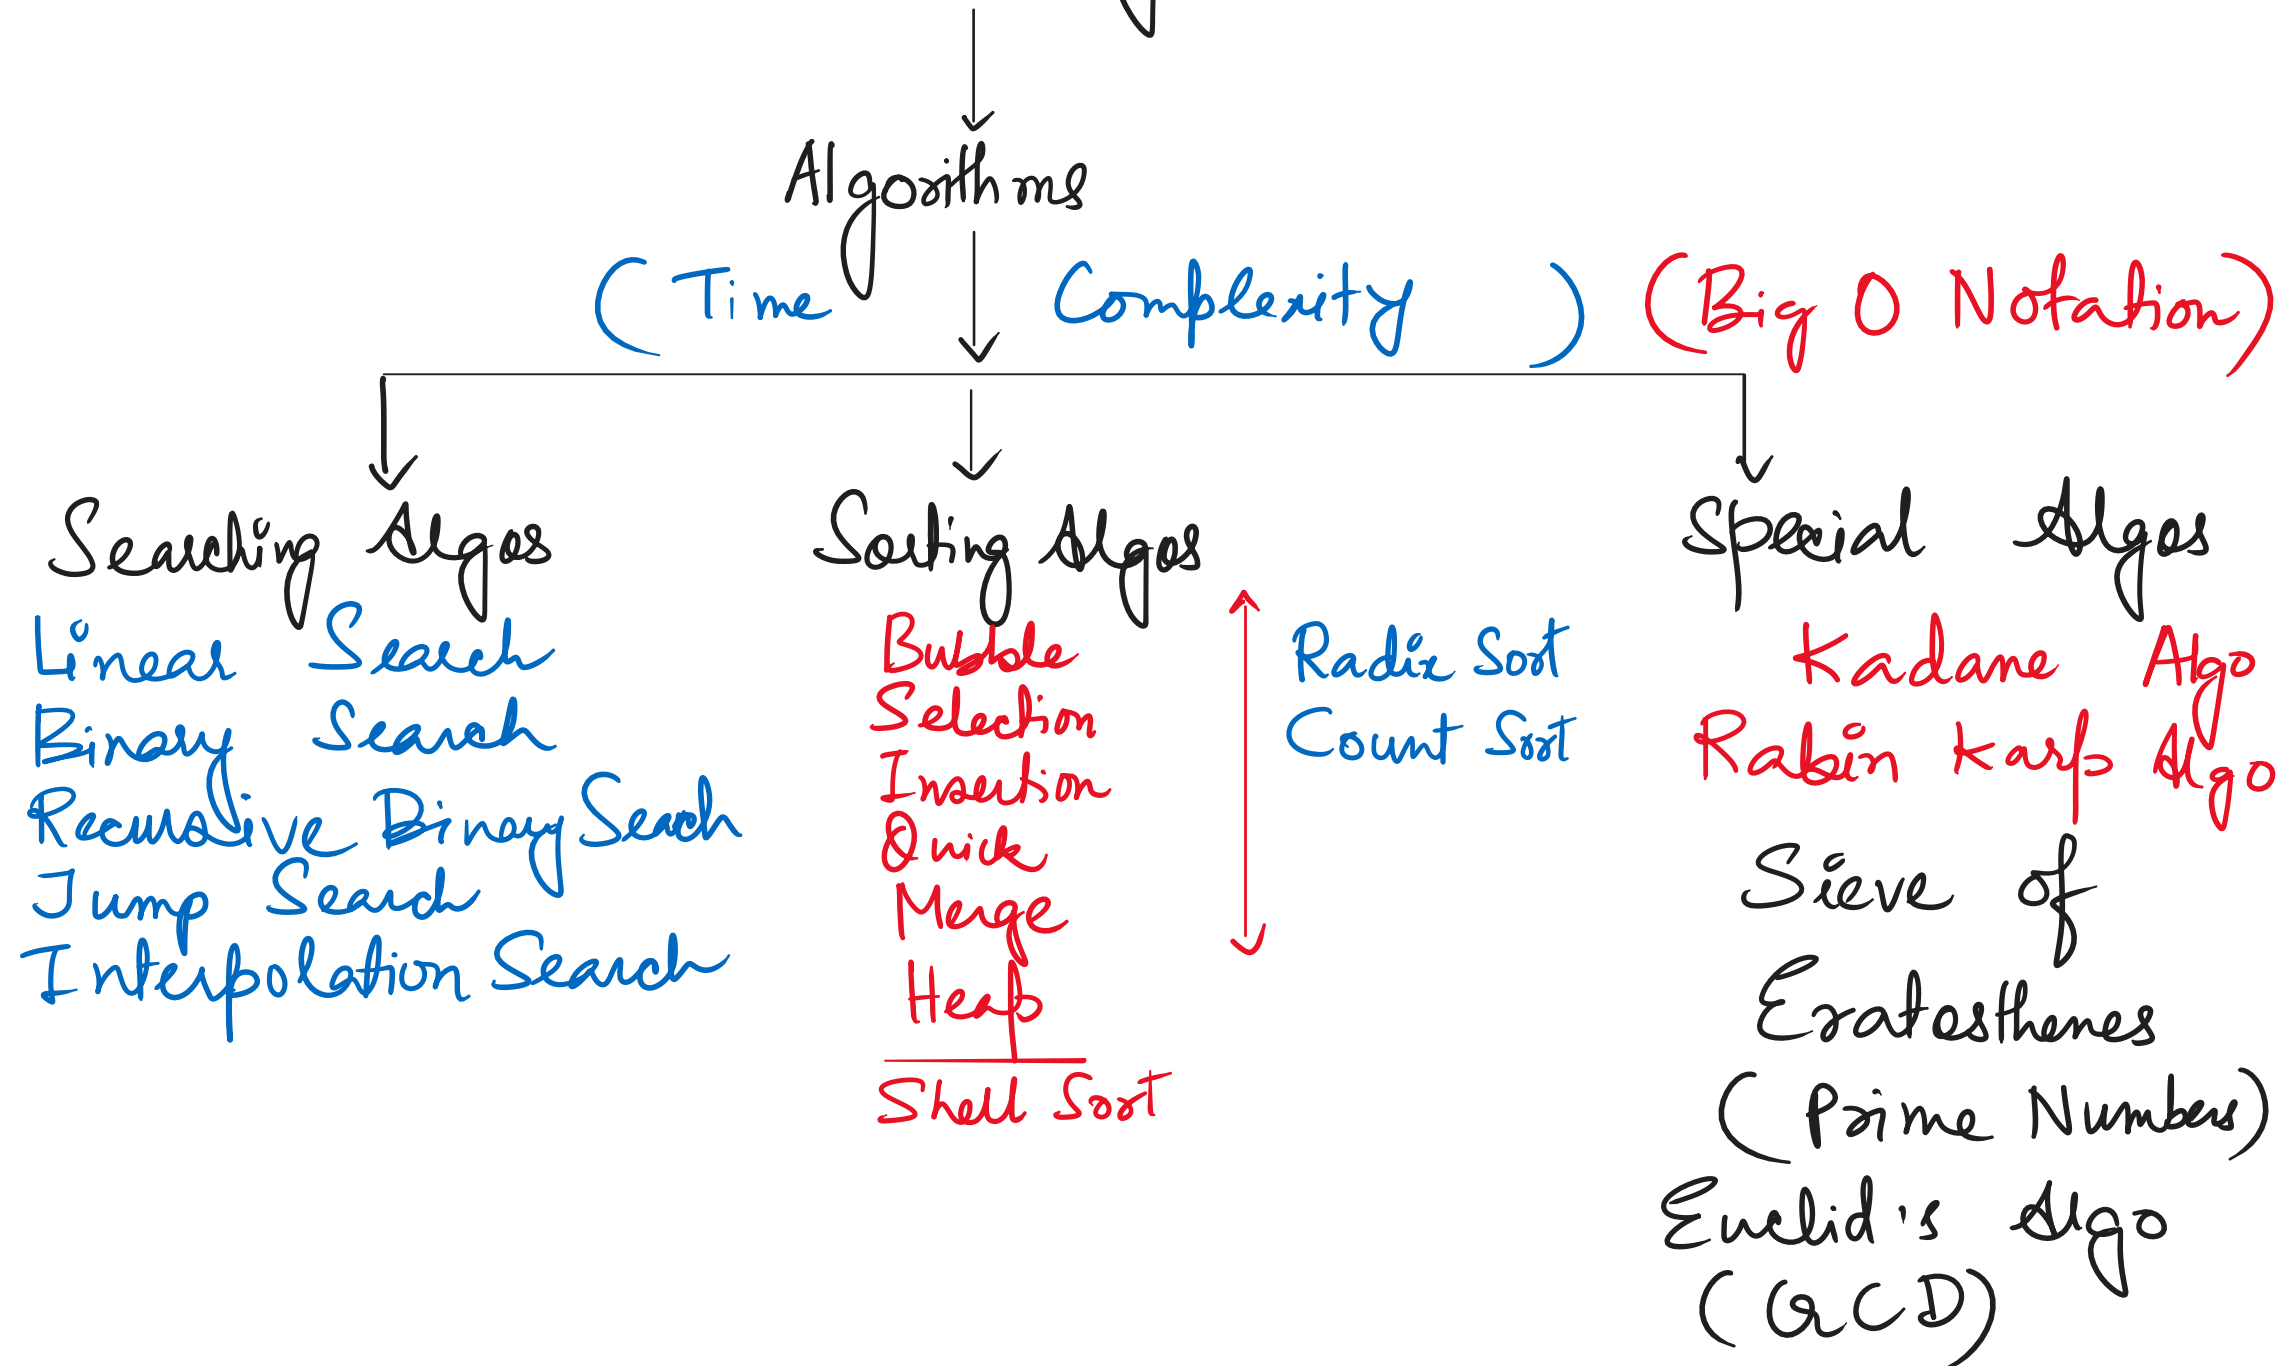 Algorithms
(Time Complexity) (Big O Notation)
Searching Algos
Linear Search
Binary Search
Recursive Binary Search
Jump Search
Interpolation Search
Sorting Algos
Bubble
Selection
Insertion
Quick
Merge
Heap
Shell Sort
Radix Sort
Count Sort
Special Algos
Kadane Algo
Rabin Karp Algo
Sieve of
Eratosthenes
(Prime Numbers)
Euclid's Algo
(GCD)